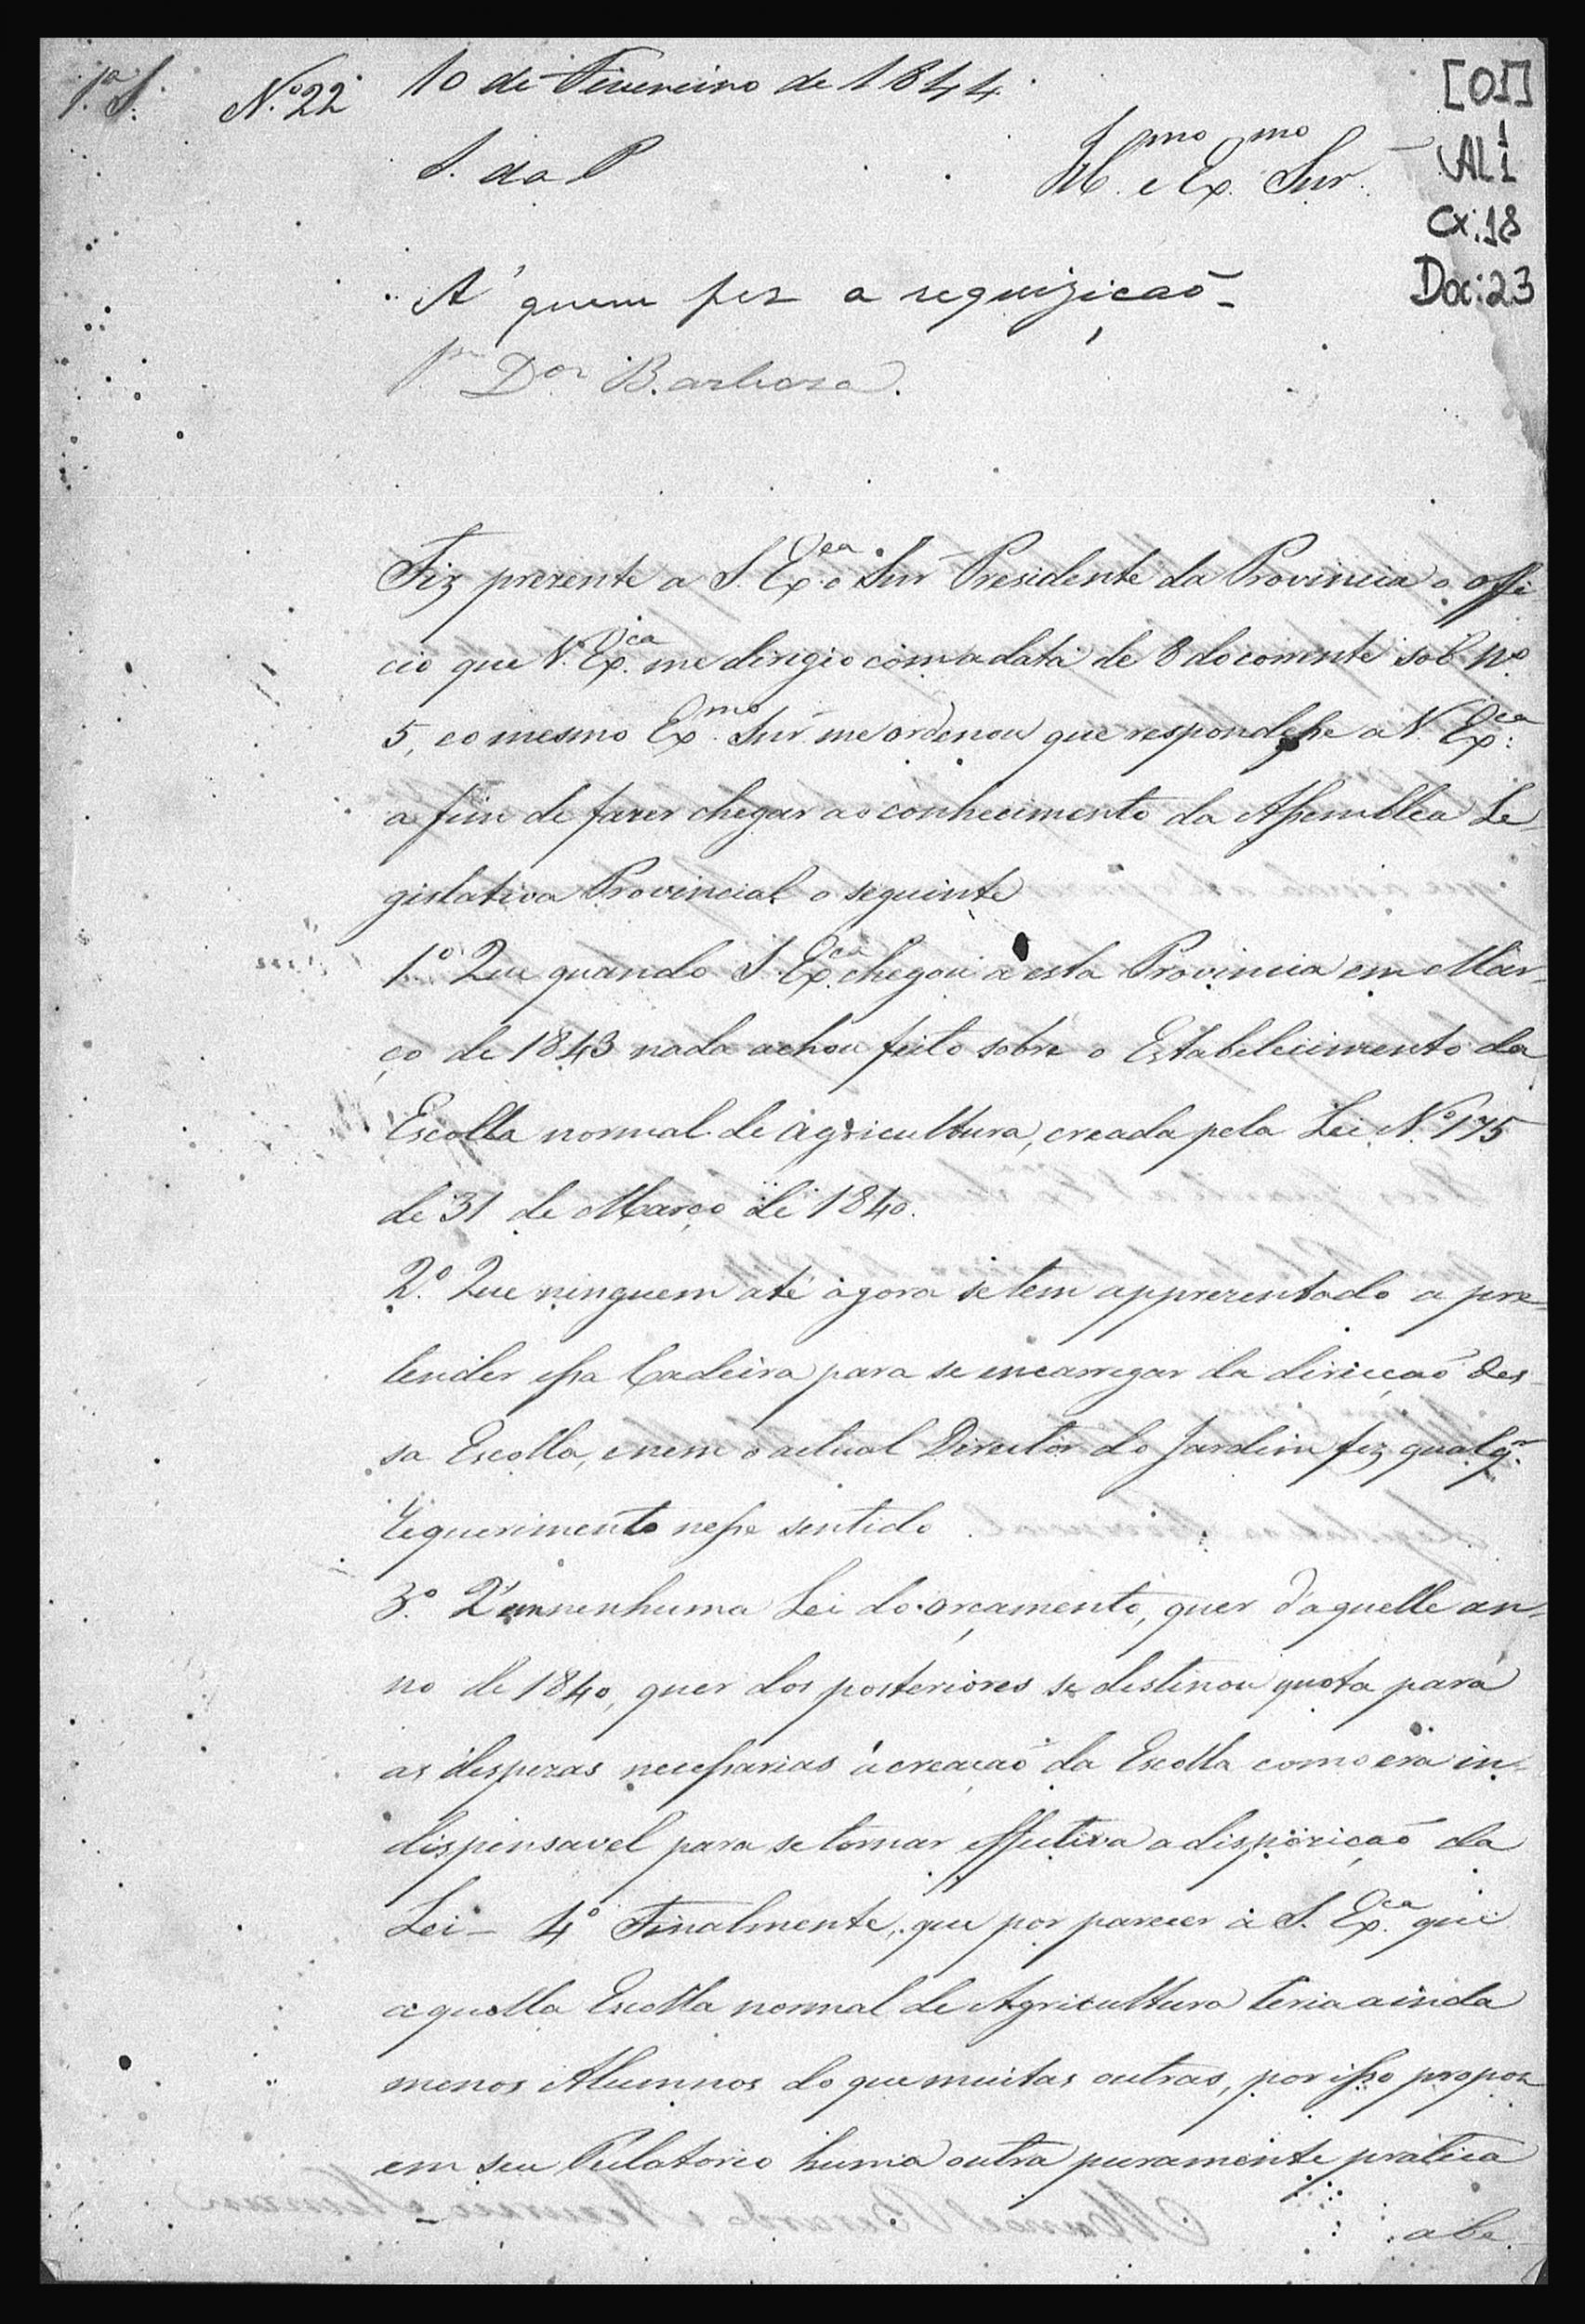 1.ª S. N.º 22 10 de Fevereiro de 1844
[01]
AL 1 1
Cx: 18
Doc: 23
S. da P
Ill.mo e Ex.mo Snr.
A' quem fez a requizicaõ
Pr Dor Barboza.
Fiz prezente a S. Ex.ca o Snr Presidente da Provincia o offi
cio que V. Ex.ca me dirigio com a data de 8 do corrente sob N.º
5, e o mesmo Ex.mo Snr me ordenou que respondesse a V. Ex.ca
a fim de fazer chegar ao conhecimento da Assemblea Le
gislativa Provincial o seguinte
1.º Que quando S. Ex.ca chegou á esta Provincia em Mar
ço de 1843 nada achou feito sobre o Estabelecimento da
Escolla normal de agricultura, creada pela Lei N.º 175
de 31 de Março de 1840.
2.º Que ninguem até agora se tem apprezentado a pre
tender essa Cadeira para se encarregar da direcçaõ des
sa Escolla, e nem o actual Director do Jardim fez qualqr.
requerimento nesse sentido.
3.º Q' em nenhuma Lei do orçamento, quer d'aquelle an
no de 1840, quer dos posteriores se destinou quota para
as despezas necessarias á creaçaõ da Escolla como era in
dispensavel para se tornar effectiva a dispoziçaõ da
Lei - 4.º Finalmente, que por parecer á S. Ex.ca que
aquella Escolla normal de Agricultura teria ainda
menos Alumnos do que muitas outras, por isso propoz
em seu Relatorio huma outra puramente pratica
a be